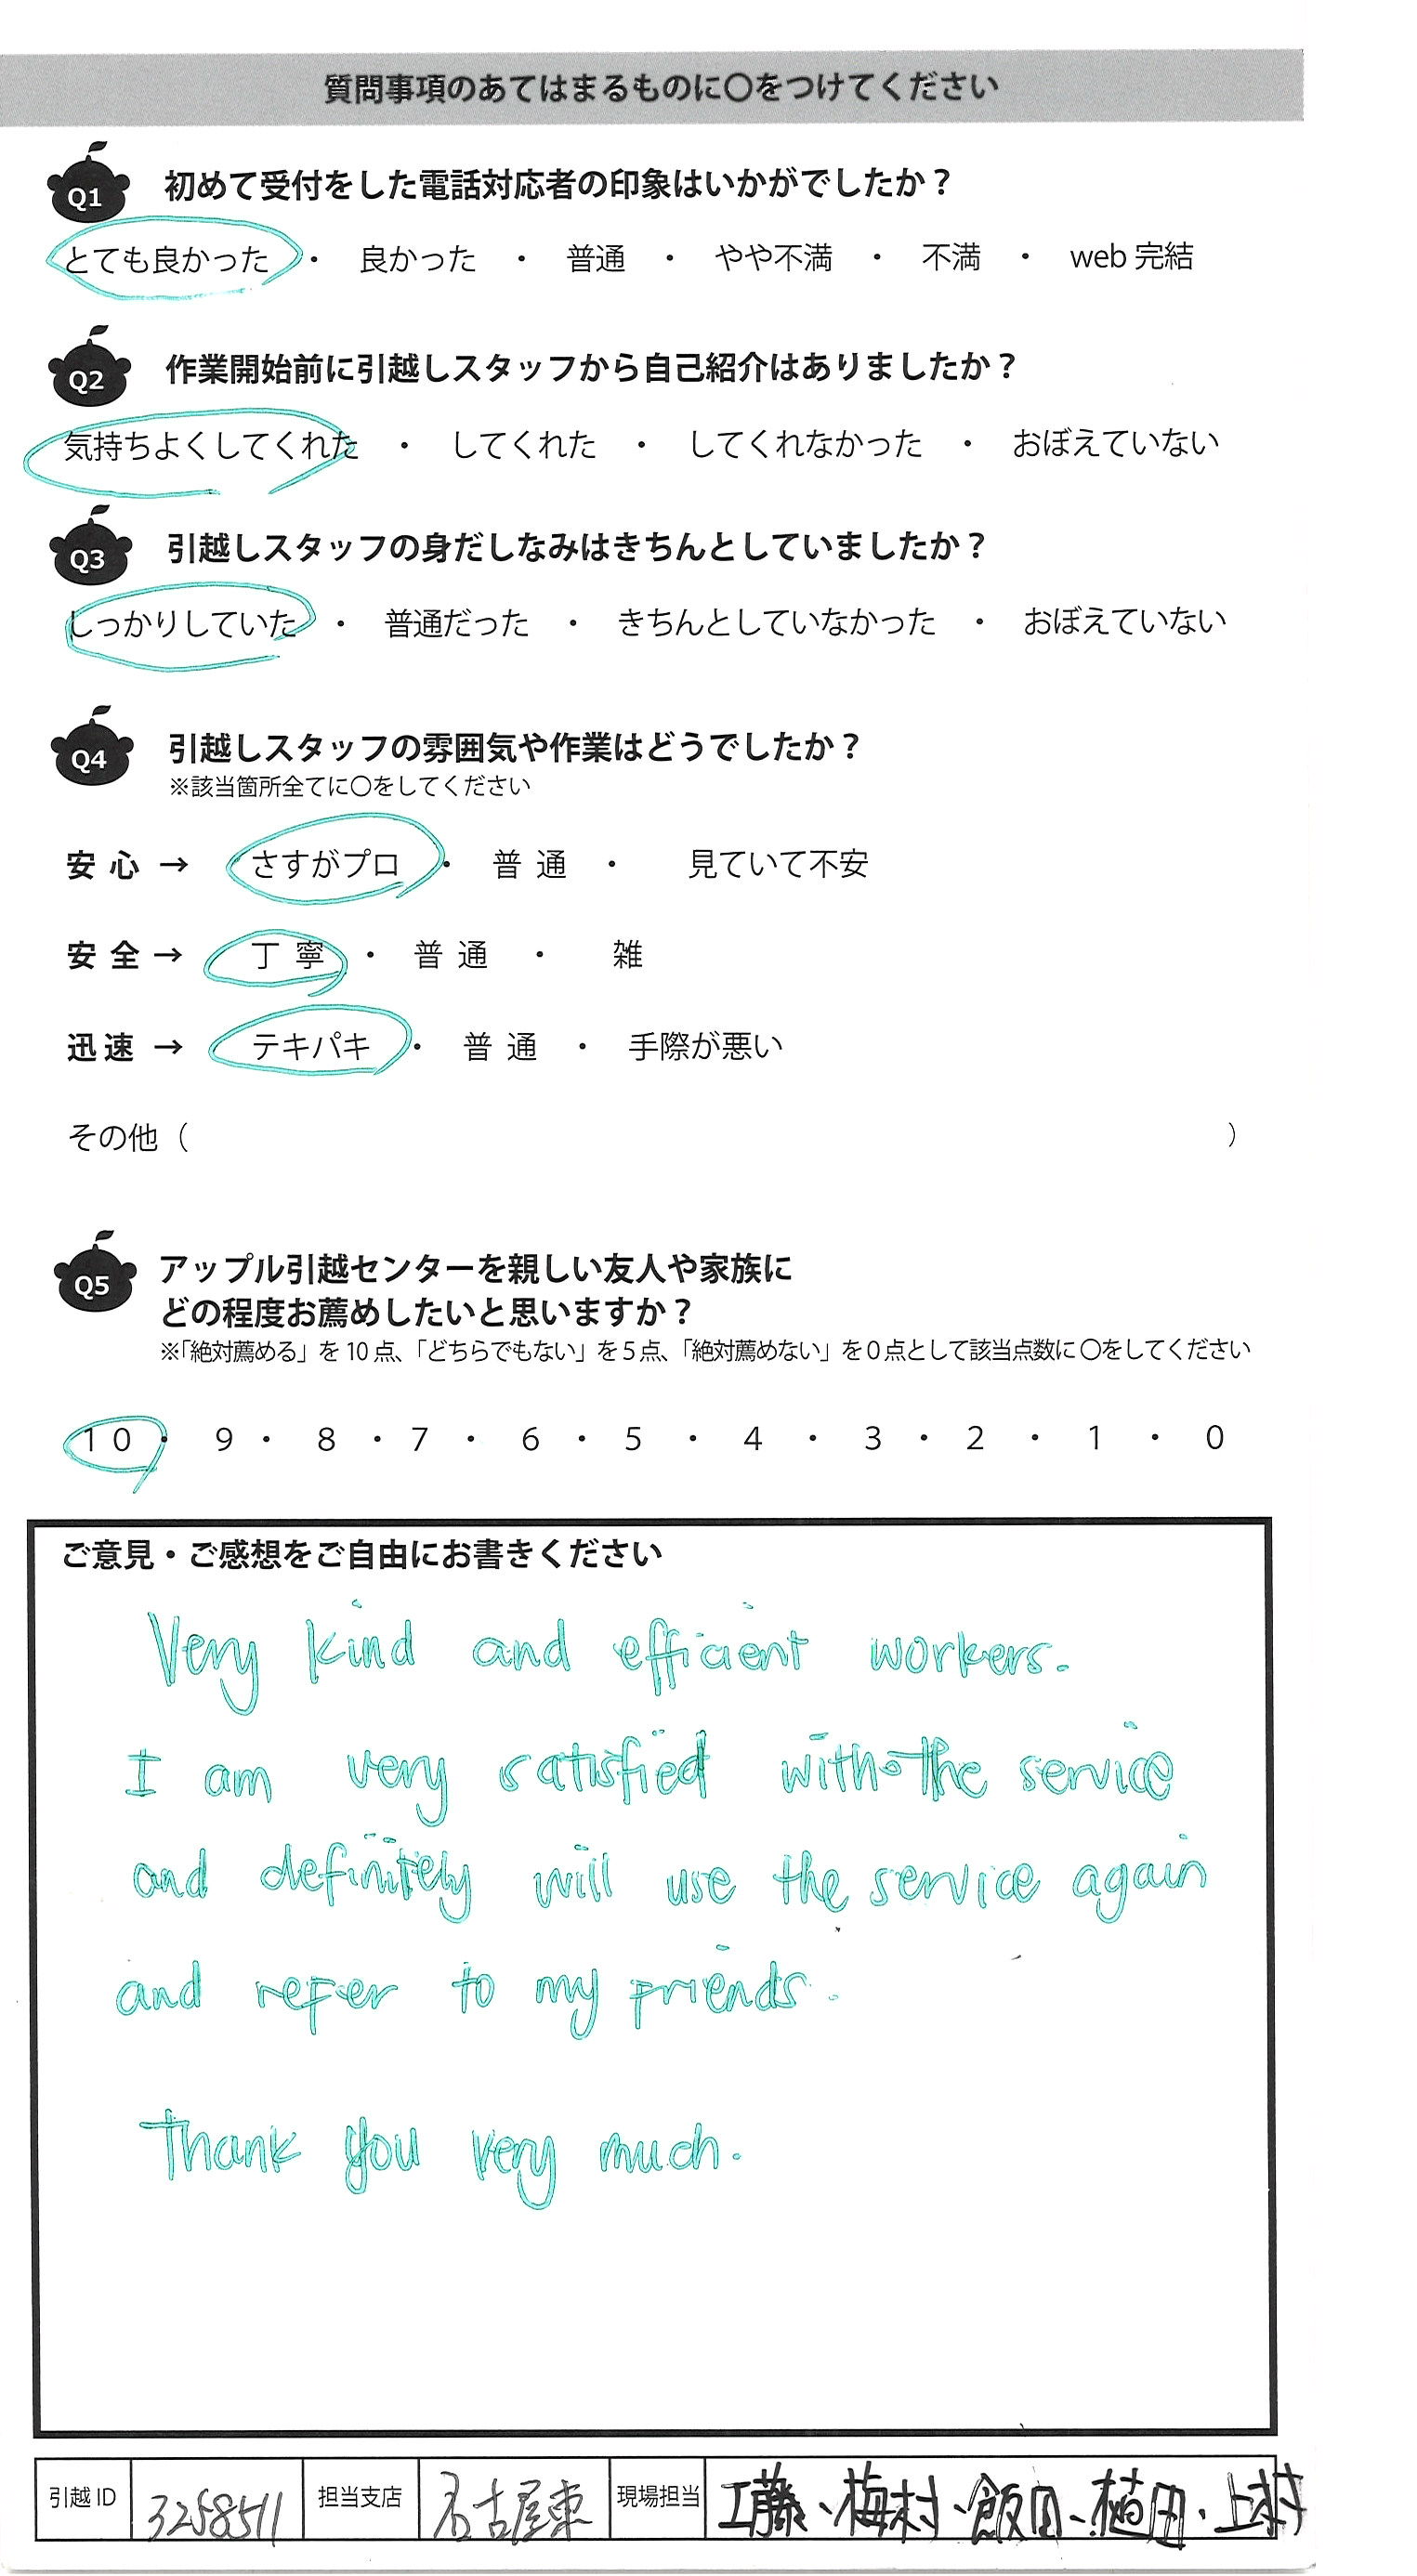 質問事項のあてはまるものに〇をつけてください
Q1 初めて受付をした電話対応者の印象はいかがでしたか？
とても良かった ・ 良かった ・ 普通 ・ やや不満 ・ 不満 ・ web 完結
Q2 作業開始前に引越しスタッフから自己紹介はありましたか？
気持ちよくしてくれた ・ してくれた ・ してくれなかった ・ おぼえていない
Q3 引越しスタッフの身だしなみはきちんとしていましたか？
しっかりしていた ・ 普通だった ・ きちんとしていなかった ・ おぼえていない
Q4 引越しスタッフの雰囲気や作業はどうでしたか？
※該当箇所全てに〇をしてください
安心 → さすがプロ ・ 普通 ・ 見ていて不安
安全 → 丁寧 ・ 普通 ・ 雑
迅速 → テキパキ ・ 普通 ・ 手際が悪い
その他（ ）
Q5 アップル引越センターを親しい友人や家族に
どの程度お薦めしたいと思いますか？
※「絶対薦める」を 10 点、「どちらでもない」を 5 点、「絶対薦めない」を 0 点として該当点数に 〇をしてください
10 ・ 9 ・ 8 ・ 7 ・ 6 ・ 5 ・ 4 ・ 3 ・ 2 ・ 1 ・ 0
ご意見・ご感想をご自由にお書きください
Very kind and efficient workers.
I am very satisfied with the service
and definitely will use the service again
and refer to my friends.
Thank you very much.
引越 ID 3258511 担当支店 名古屋東 現場担当 工藤、梅村、飯田、植田、上村